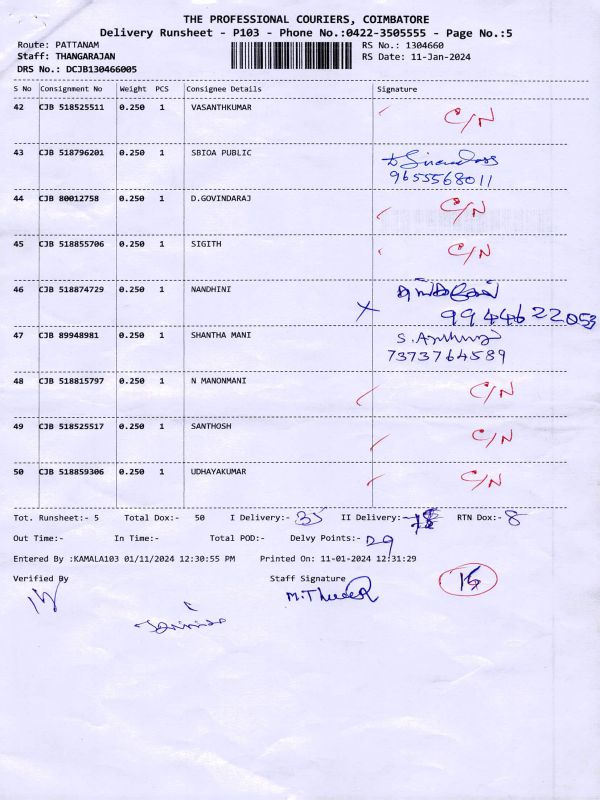 THE PROFESSIONAL COURIERS, COIMBATORE
Delivery Runsheet - P103 - Phone No.:0422-3505555 - Page No.:5
Route: PATTANAM RS No.: 1304660
Staff: THANGARAJAN RS Date: 11-Jan-2024
DRS No.: DCJB130466005
S No Consignment No Weight PCS Consignee Details Signature
42 CJB 518525511 0.250 1 VASANTHKUMAR C/N
43 CJB 518796201 0.250 1 SBIOA PUBLIC
9655568011
44 CJB 80012758 0.250 1 D.GOVINDARAJ C/N
45 CJB 518855706 0.250 1 SIGITH C/N
46 CJB 518874729 0.250 1 NANDHINI
X 9944622053
47 CJB 89948981 0.250 1 SHANTHA MANI S.
7373764589
48 CJB 518815797 0.250 1 N MANONMANI C/N
49 CJB 518525517 0.250 1 SANTHOSH C/N
50 CJB 518859306 0.250 1 UDHAYAKUMAR C/N
Tot. Runsheet:- 5 Total Dox:- 50 I Delivery:- 35 II Delivery:- RTN Dox:- 8
Out Time:- In Time:- Total POD:- Delvy Points:- 29
Entered By :KAMALA103 01/11/2024 12:30:55 PM Printed On: 11-01-2024 12:31:29
Verified By Staff Signature